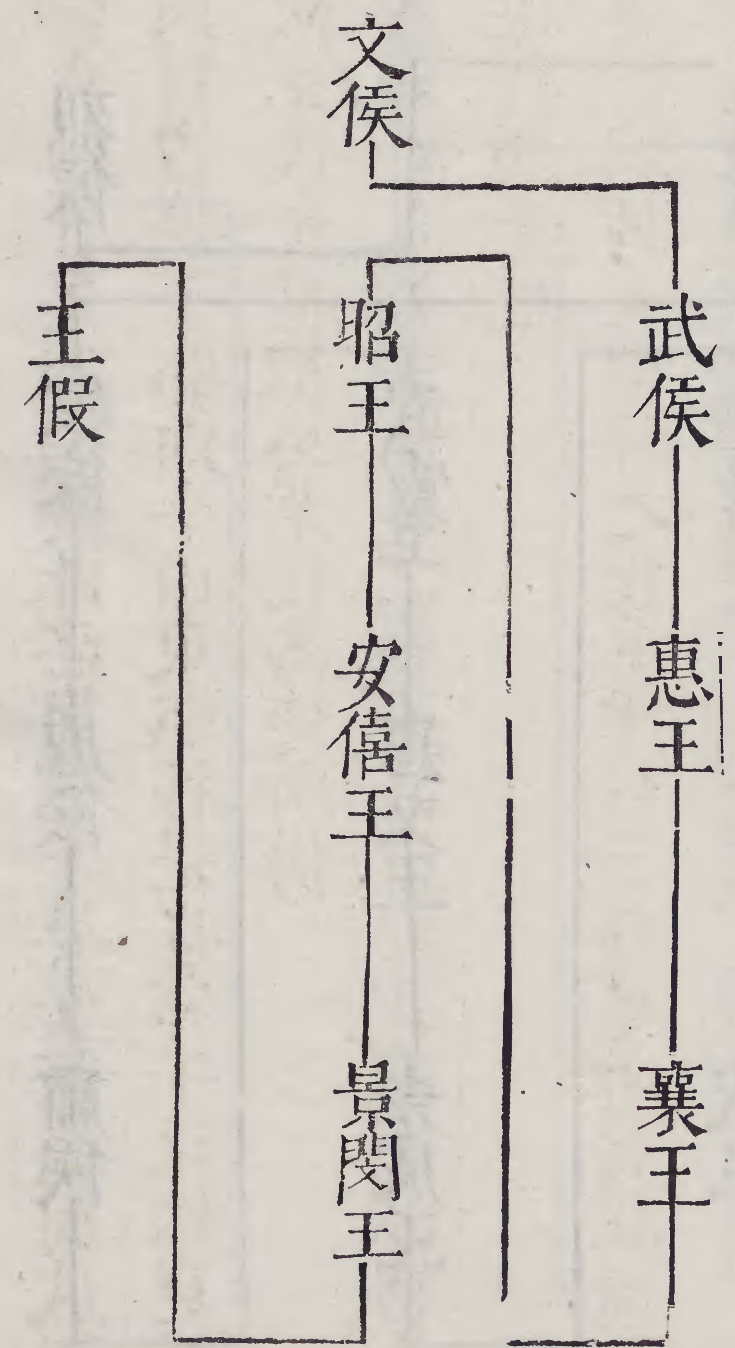 文侯
武侯
惠王
襄王
昭王
安僖王
景閔王
王假